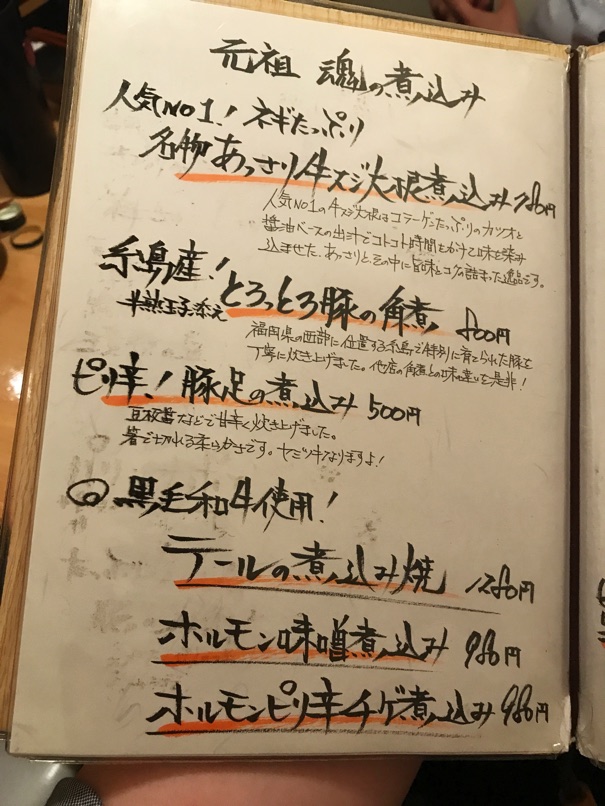 元祖 魂の煮込み
人気NO1! ネギたっぷり
名物あっさり牛スジ大根煮込み 780円
人気NO1の牛スジ大根はコラーゲンたっぷりのカツオと
醤油ベースの出汁でコトコト時間をかけて味を染み
込ませた、あっさりと、その中に旨味とコクの詰まった逸品です。
糸島産! とろっとろ豚の角煮 800円
半熟玉子添え
福岡県の西部に位置する糸島で特別に育てられた豚を
丁寧に炊き上げました。他店の角煮との味の違いを是非!
ピリ辛! 豚足の煮込み 500円
豆板醤などで甘辛く炊き上げました。
箸で切れる柔らかさです。ヤミツキなりますよ!
◎ 黒毛和牛使用!
テールの煮込み焼 1280円
ホルモン味噌煮込み 980円
ホルモンピリ辛チゲ煮込み 980円